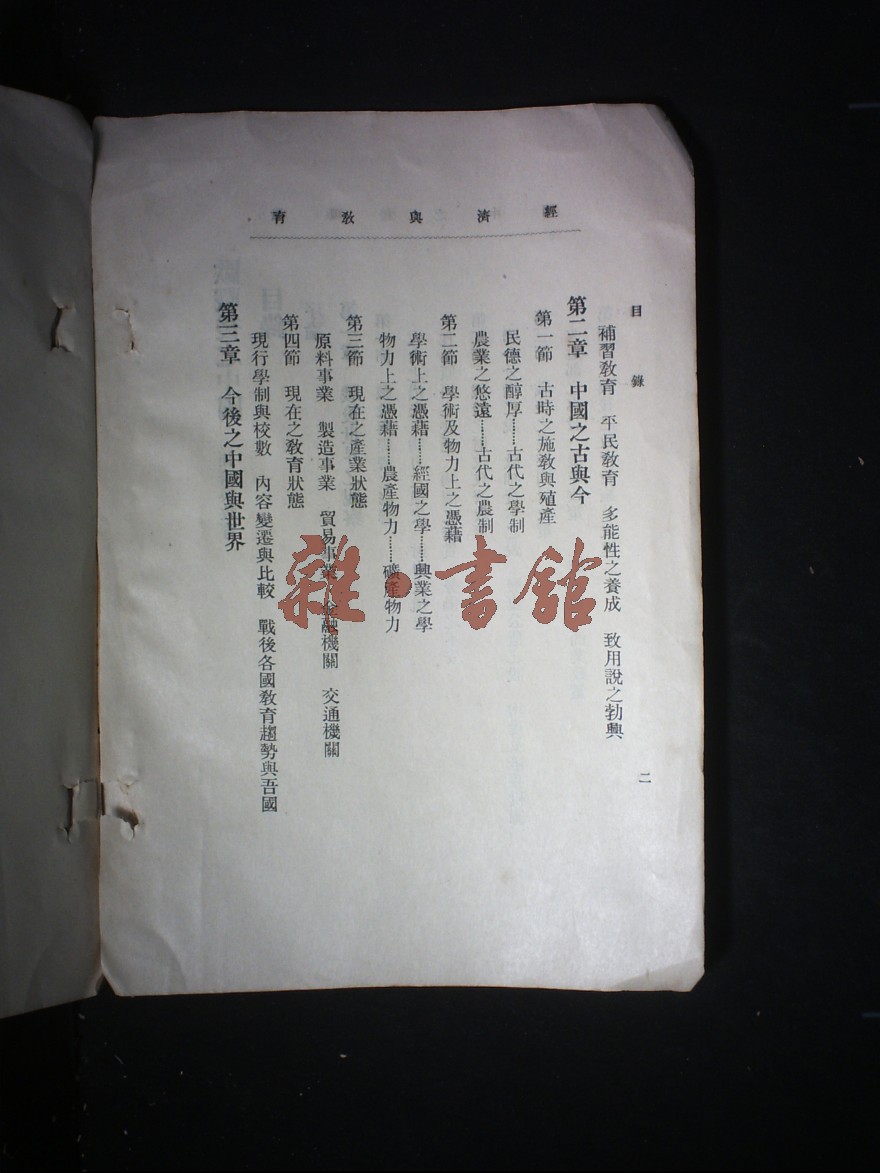 經濟與教育
目錄
二
補習教育　平民教育　多能性之養成　致用說之勃興
第二章　中國之古與今
第一節　古時之施教與殖產
民德之醇厚……古代之學制
農業之悠遠……古代之農制
第二節　學術及物力上之憑藉
學術上之憑藉……經國之學……興業之學
物力上之憑藉……農產物力……礦產物力
第三節　現在之產業狀態
原料事業　製造事業　貿易事業　金融機關　交通機關
第四節　現在之教育狀態
現行學制與校數　內容變遷與比較　戰後各國教育趨勢與吾國
第三章　今後之中國與世界
雜·書館